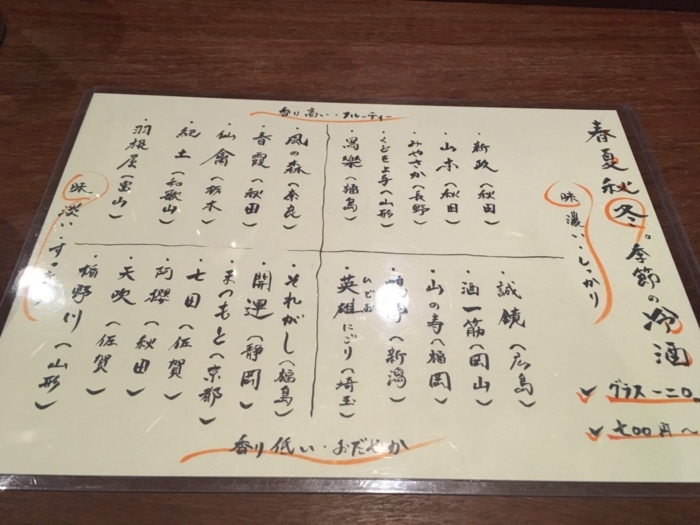 春夏秋冬。季節の冷酒
グラス 一二〇
七〇〇円〜
味 濃い・しっかり
香り高い・フルーティー
・新政(秋田)
・山本(秋田)
・みやさか(長野)
・くどき上手(山形)
・寫樂(福島)
・風の森(奈良)
・春霞(秋田)
・仙禽(栃木)
・紀土(和歌山)
・羽根屋(富山)
味 淡い・す
・誠鏡(広島)
・酒一筋(岡山)
・山の寿(福岡)
(新潟)
・英雄にごり(埼玉)
・それがし(福島)
・開運(静岡)
・まつもと(京都)
・七田(佐賀)
・阿櫻(秋田)
・天吹(佐賀)
野川(山形)
香り低い・おだやか